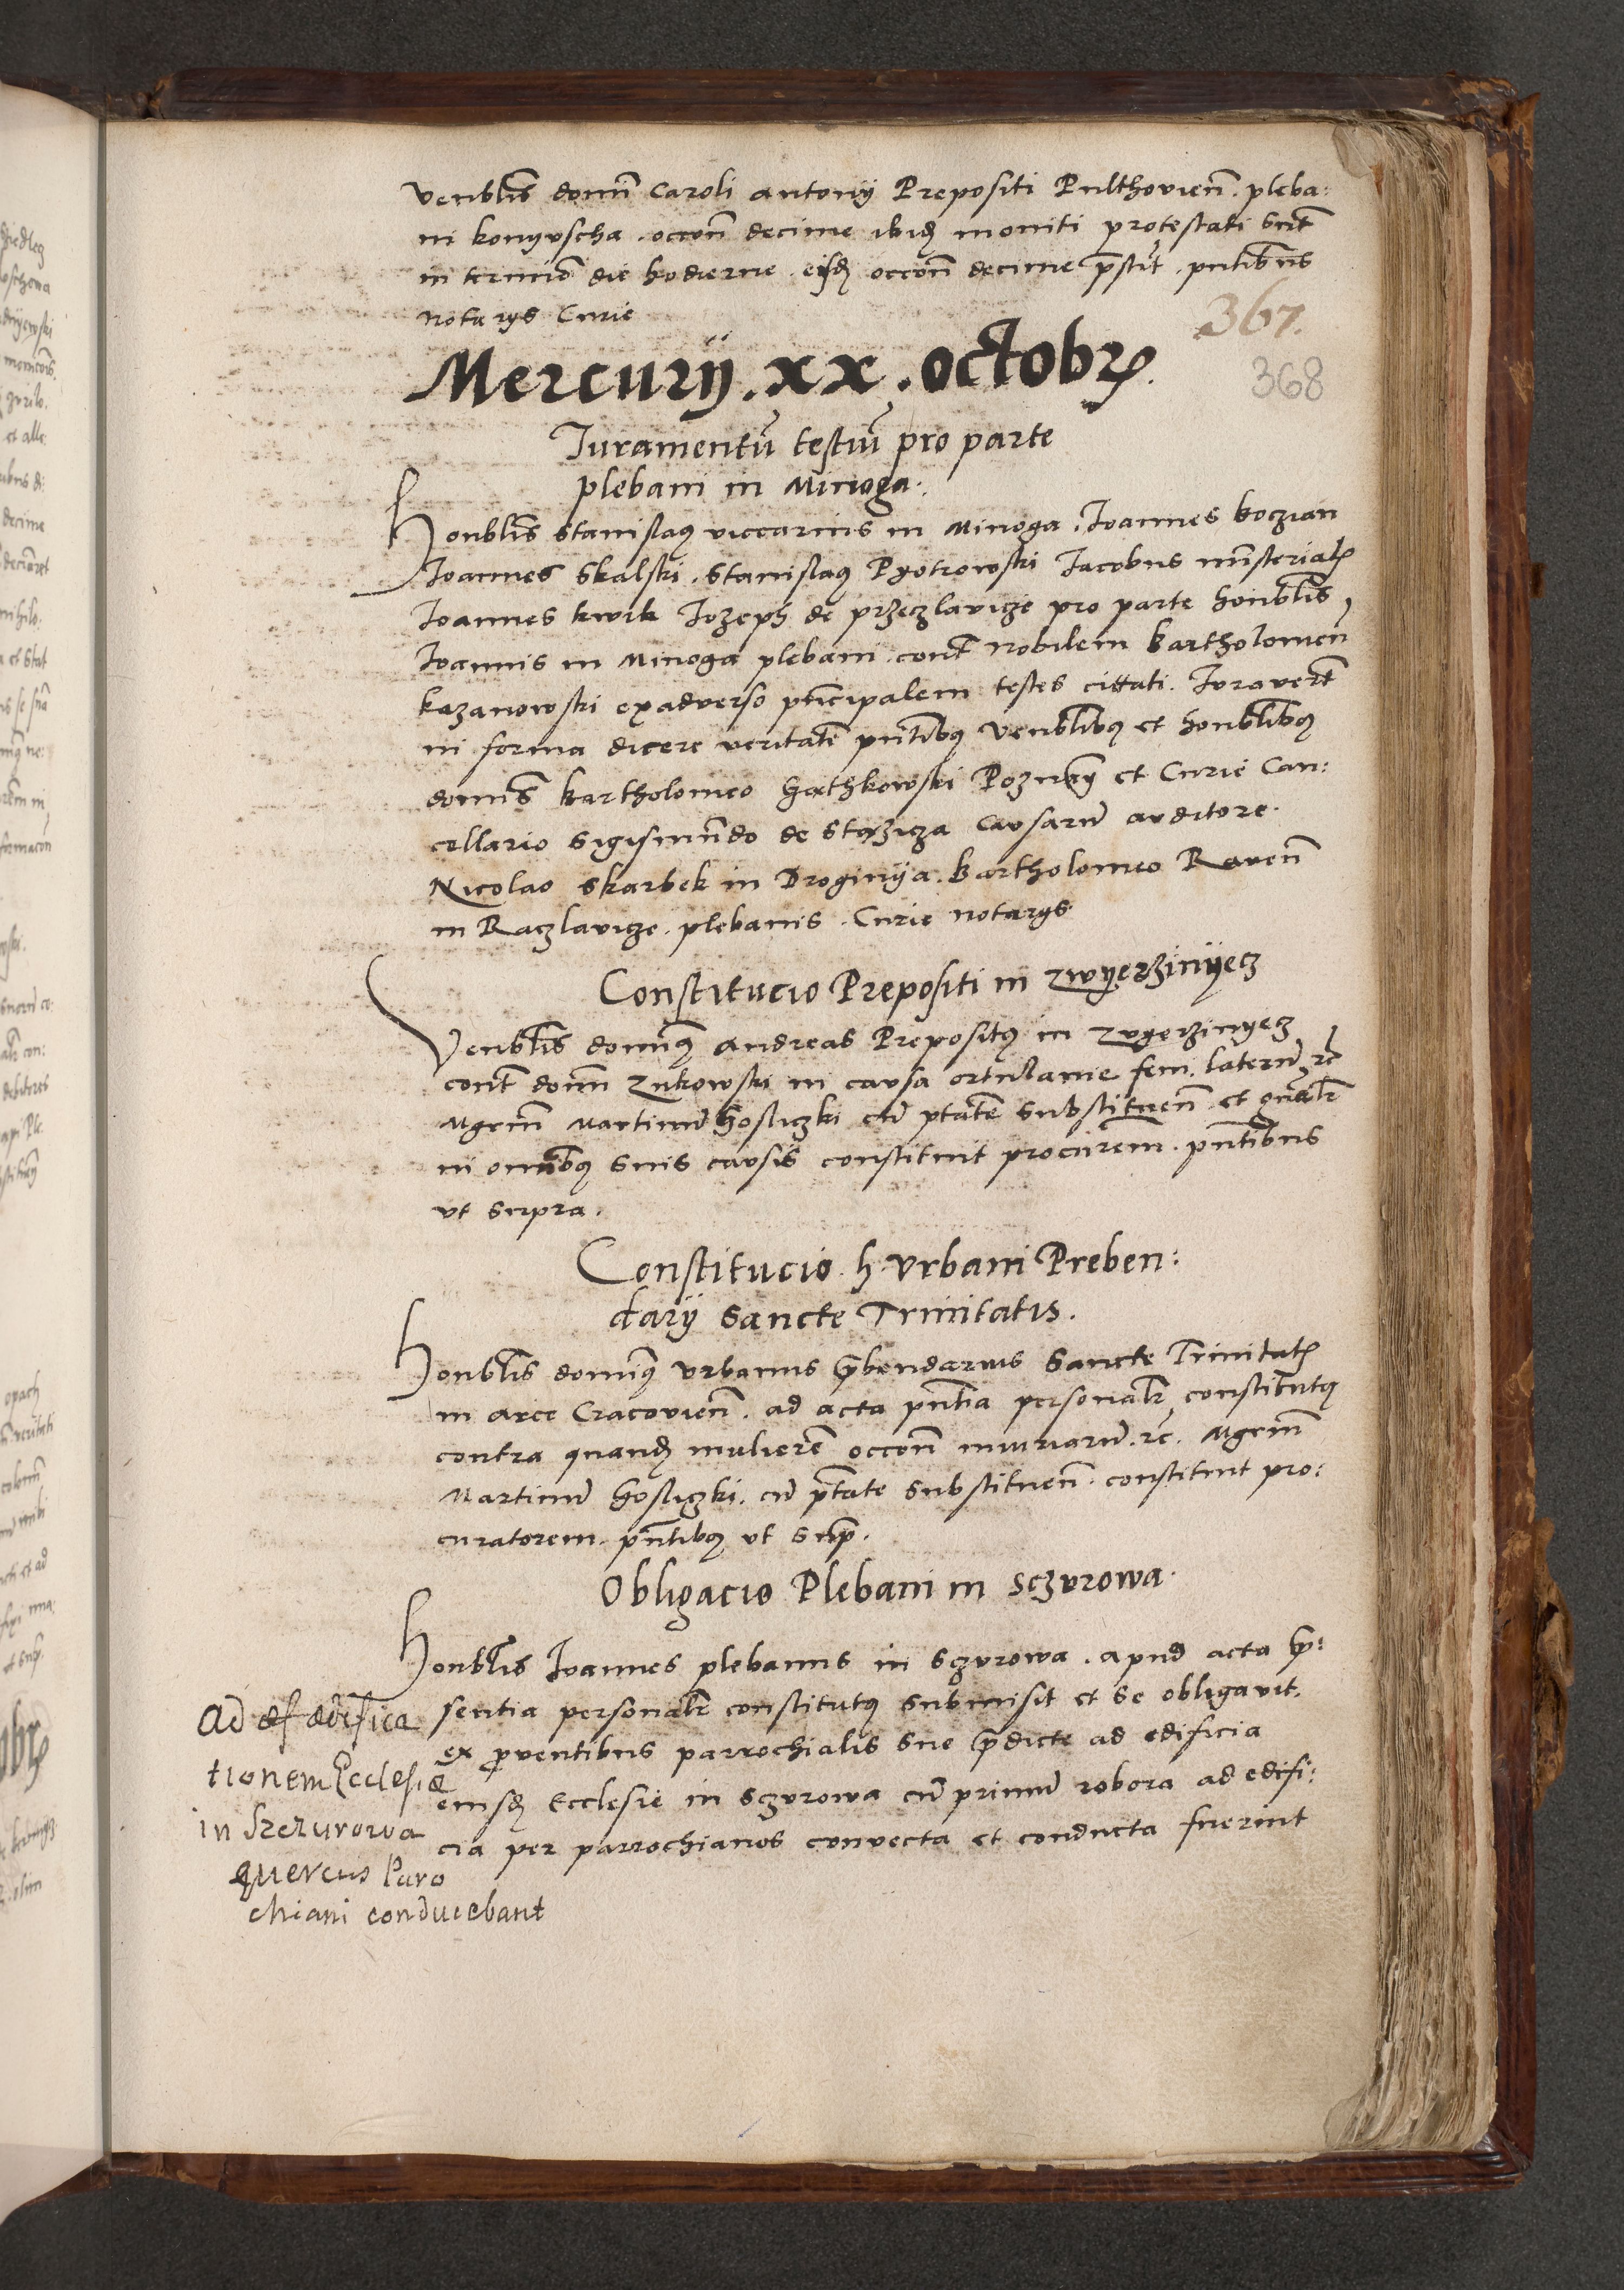 venblis domi Caroli Antonij Prepositi Pulthovien . pleba:
ni konyvscha . occon decime ibid moniti protestati sunt
in termino die hodierne . eisd occon decime prestit . pntibus
notarijs Curie
367.
Mercurij . xx . octobr
368
Iuramentu testiu pro parte
plebani in Minoga .
Honblis Stanislaus viccarius in Minoga . Ioannes koczian
Ioannes Skalski . Stanislaus Pyotrowski Iacobus ministerialis
Ioannes kwik Iozeph de przeczlavicze pro parte honblis
Ioannis in Minoga plebani . cont Nobilem Bartholomeu
kazanowski ex adverso principalem testes cittati . Iuraverut
in forma dicere veritate pntibus Venblibus et honblibus
domis Bartholomeo Gathkowski Poznan et Curie Can:
cellario Sigismundo de Stazicza Causaru auditore .
Nicolao Skarbek in Droginya . Bartholomeo Raven
in Raczlavicze . plebanis . Curie notarijs
Constitucio Prepositi in zwyerzinyecz
Venblis dominus Andreas Prepositus in zvyerzinyecz
cont domi Zukowski in causa feni . lateru rc
Mgrum Martinu Gosliczki cu ptate substituen . et gnalr
in omibus suis causis constituit procurem . pntibus
ut supra .
Constitucio . h . Vrbani Preben:
darij Sancte Trinitatis .
Honblis dominus Vrbanus prebendarius Sancte Trinitatis
in arce Cracovien . ad acta pntia personalr constitutus
contra quand muliere occon iniuriaru . rc . Mgrum
Martinu Gosliczki . cu ptate substituen . constituit pro:
curatorem . pntibus ut sup .
Obligacio Plebani in Sczurowa .
Honblis Ioannes plebanus in Sczurowa . apud acta pre:
sentia personalr constitutus submisit et se obligavit .
ex proventibus parrochialis sue predicte ad edificia
eiusd Ecclesie in Sczurowa cu primu robora ad edifi:
cia per parrochianos convecta et conducta fuerint
Ad æf ædifica
tionem Ecclesiæ
in Szczurowa
quercus Paro
chiani conducebant